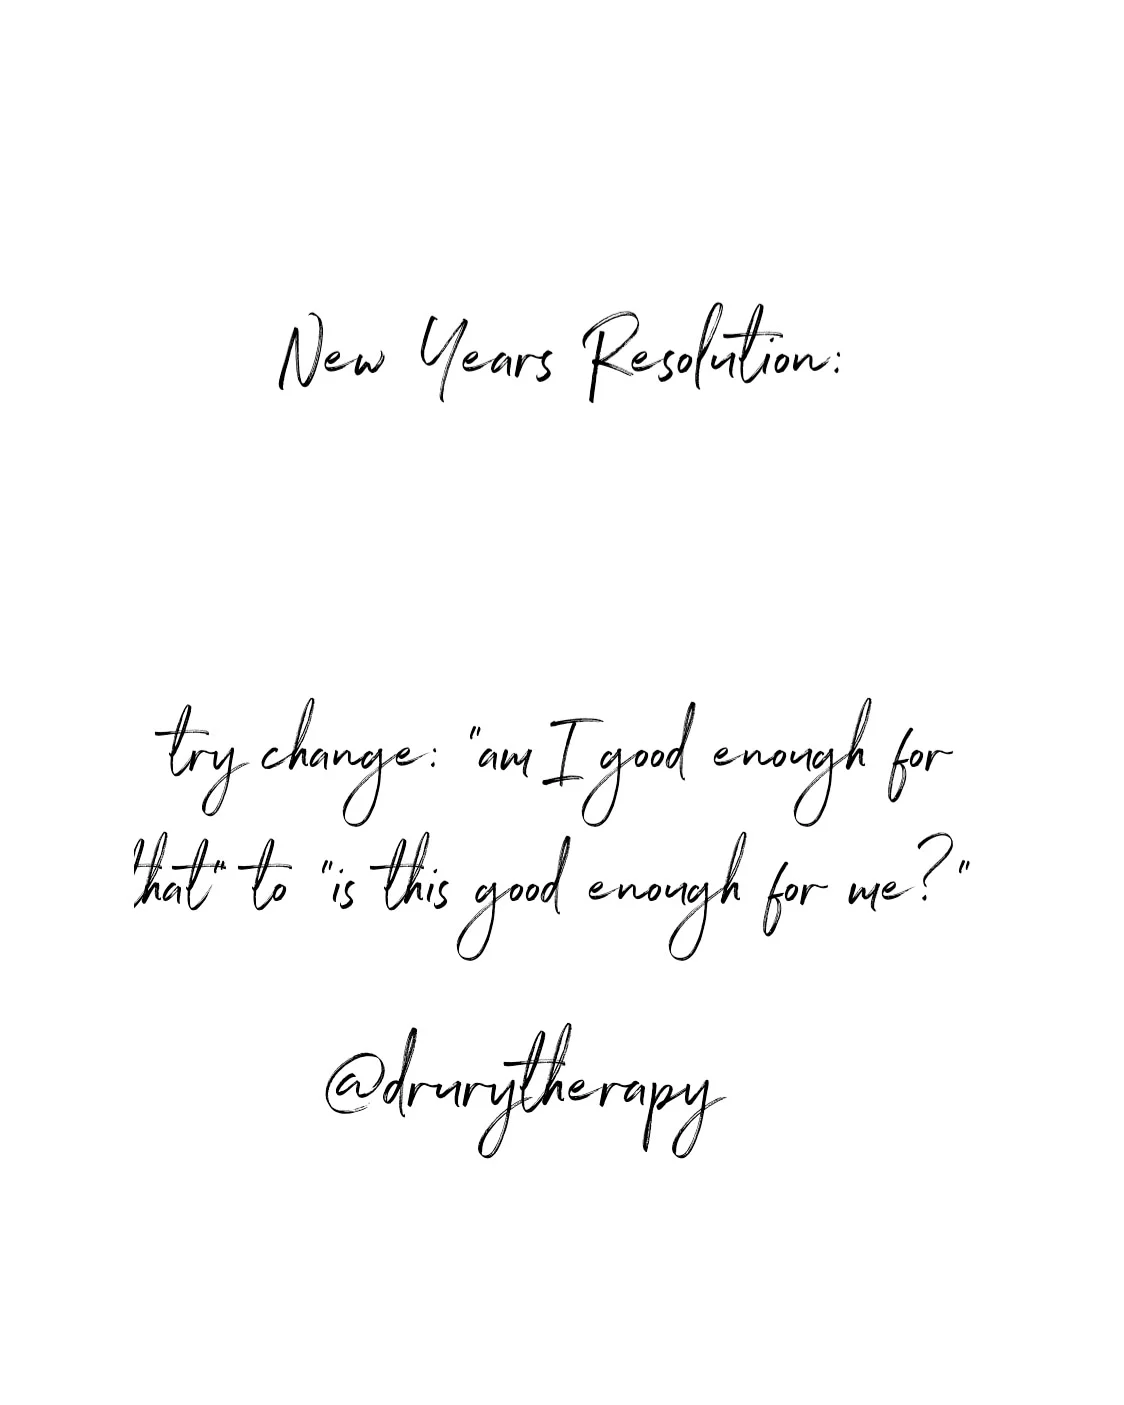 New Years Resolution:
try change: "am I good enough for
that" to "is this good enough for me?"
@drurytherapy